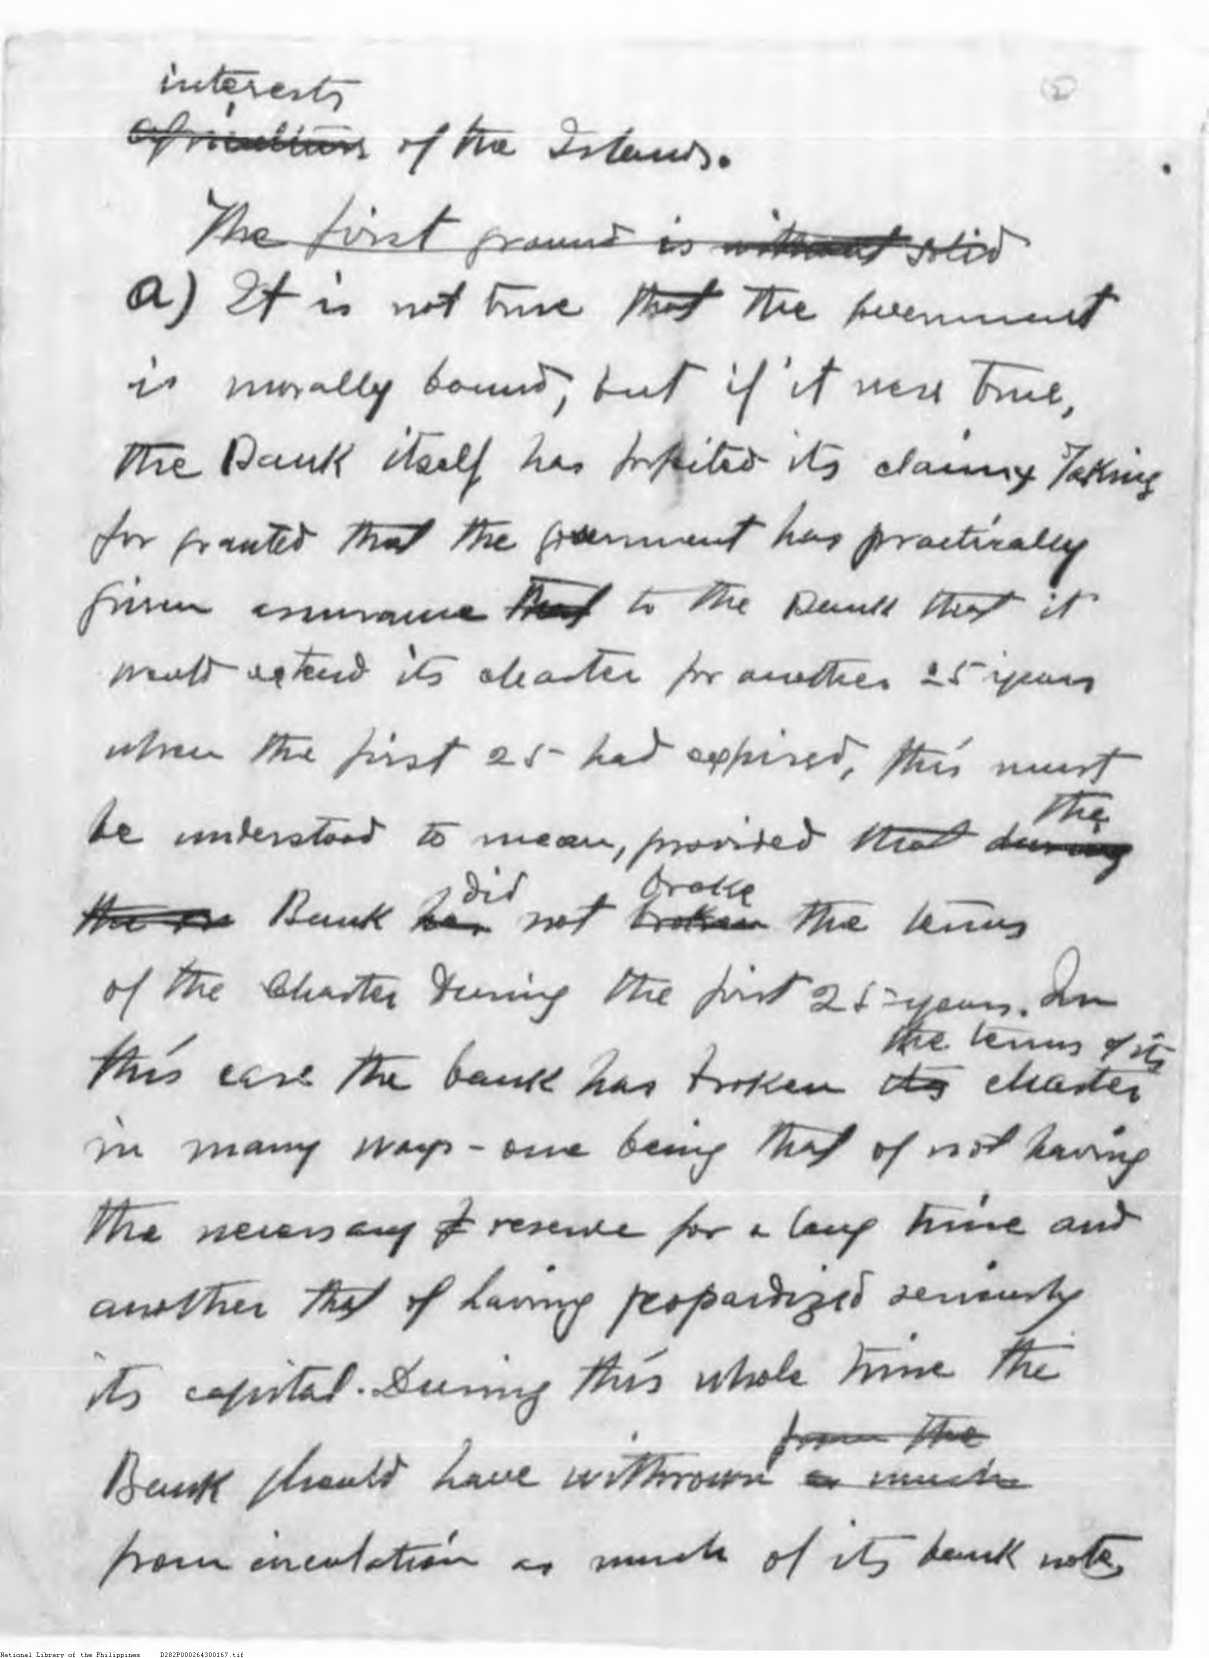 2
interests
Agriculture of the Islands.
The first ground is without solid
a) It is not true that the government
is morally bound, but if it were true,
the Bank itself has forfeited its claim. Taking
for granted that the government has practically
given assurance that to the Bank that it
would extend its charter for another 25 years
when the first 25 had expired, this must
be understood to mean, provided that during
the
the Bank has not broken the terms
did broke
of the Charter During the first 25 years. In
the terms of its
this case the bank has broken its charter
in many ways - one being that of not having
the necessary reserve for a long time and
another that of having jeopardized seriously
its capital. During this whole time the
from the
Bank should have withrown as much
from circulation as much of its bank notes
National Library of the Philippines D282P000264300167.tif